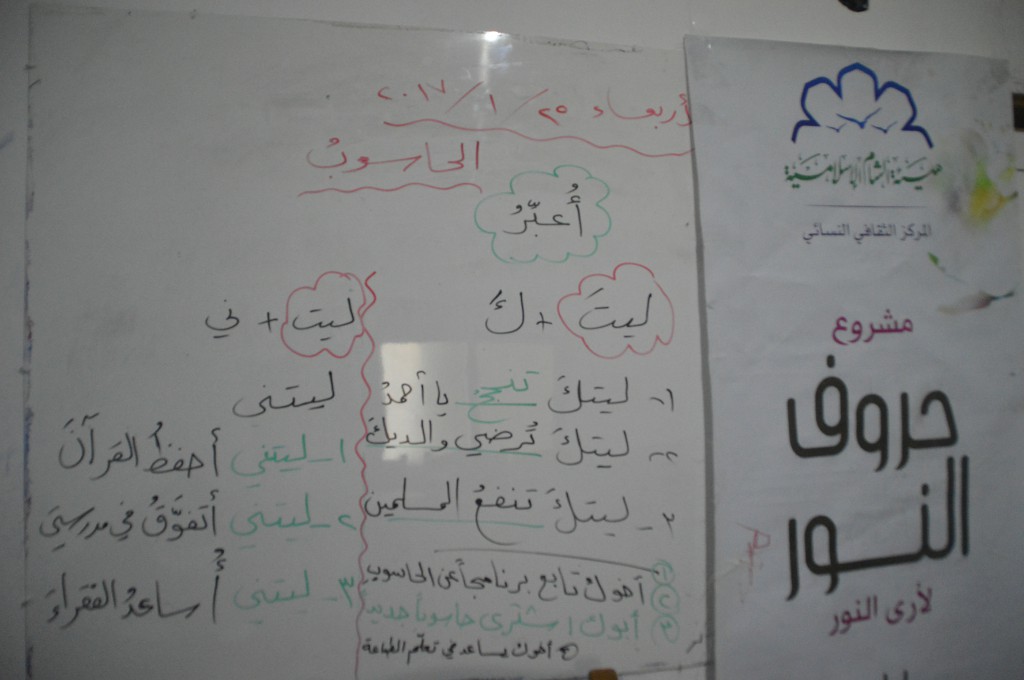 أربعاء ٢٥/١/٢٠١٧
الحاسوبُ
أُعبّرُ
ليتَ + كَ
١- ليتكَ تنجح يا أحمدُ
٢- ليتكَ تُرضي والديكَ
٣- ليتكَ تنفعُ المسلمين
① أخوك تابع برنامجاً عن الحاسوب
②
③ أبوك اشترى حاسوباً جديداً
④ أخوك يساعد في تعلّم الطباعة
ليت + ني
ليتني
١- ليتني أحفظُ القرآنَ
٢- ليتني أتفوَّقُ في مدرستي
٣- ليتني أُساعدُ الفقراءَ
هيئة الشام الإسلامية
المركز الثقافي النسائي
مشروع
حروف
النور
لأرى النور